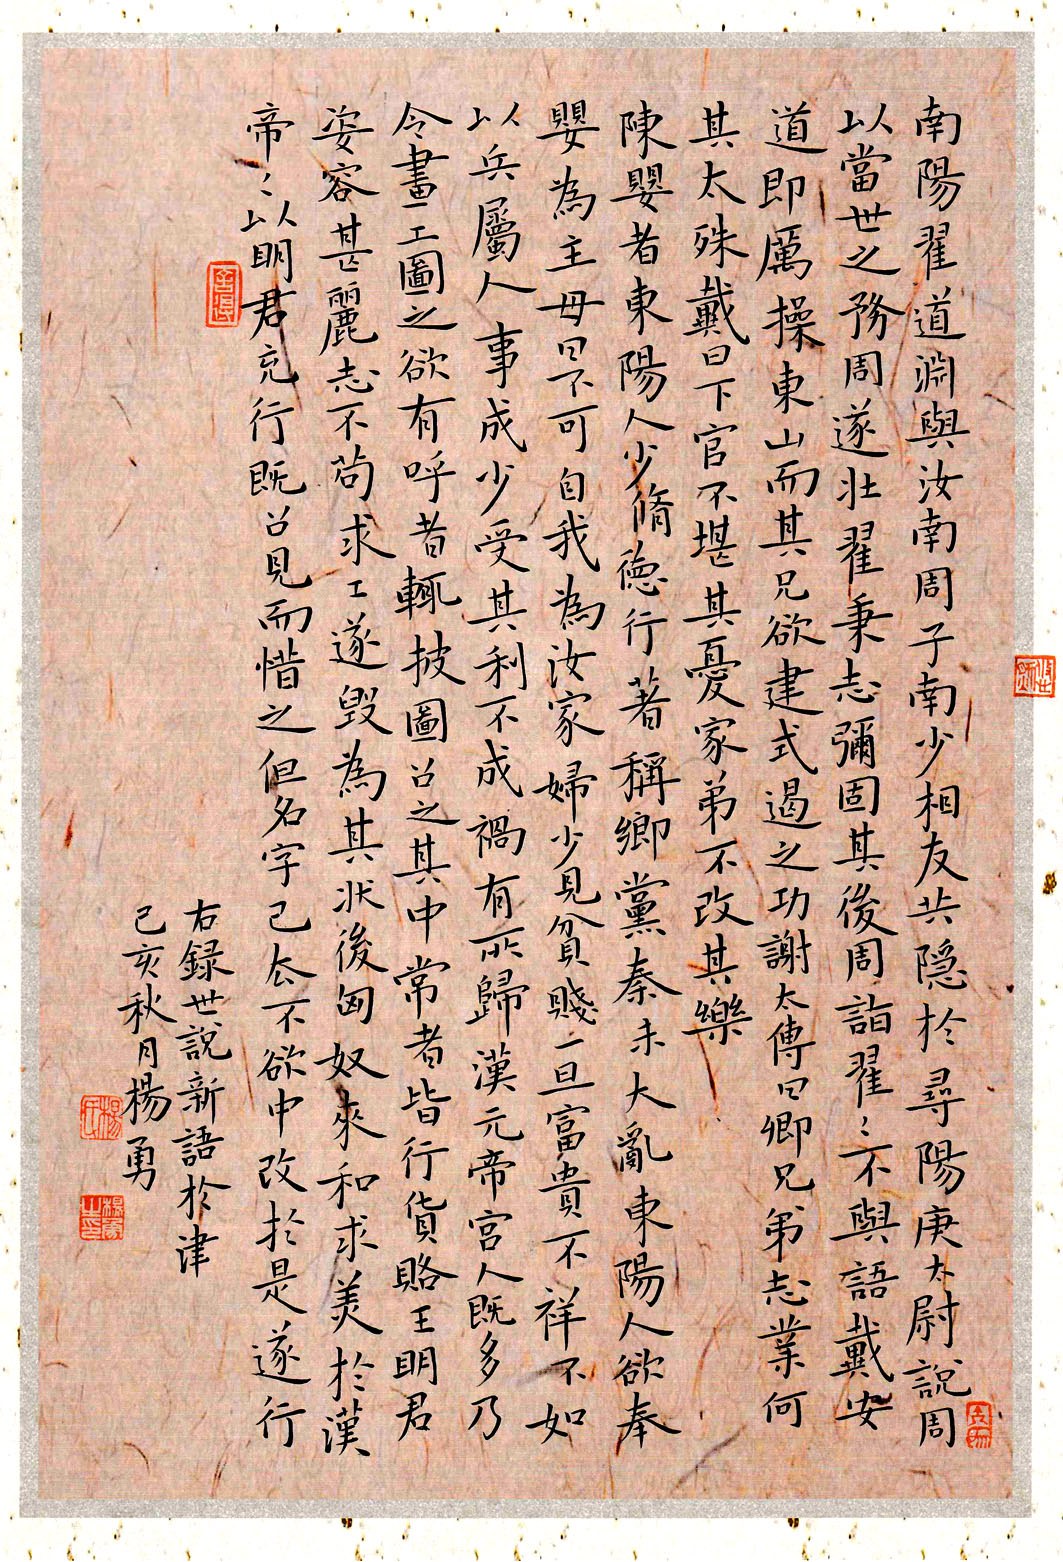 南陽翟道淵與汝南周子南少相友共隱於尋陽庾太尉說周
以當世之務周遂壯翟秉志彌固其後周詣翟〻不與語戴安
道即厲操東山而其兄欲建式遏之功謝太傅曰卿兄弟志業何
其太殊戴曰下官不堪其憂家弟不改其樂
陳嬰者東陽人少脩德行著稱鄉黨秦末大亂東陽人欲奉
嬰為主母曰不可自我為汝家婦少見貧賤一旦富貴不祥不如
以兵屬人事成少受其利不成禍有所歸漢元帝宮人既多乃
令畫工圖之欲有呼者輒披圖召之其中常者皆行貨賂王明君
姿容甚麗志不苟求工遂毀為其狀後匈奴來和求美於漢
帝〻以明君充行既召見而惜之但名字已去不欲中改於是遂行
右録世說新語於津
己亥秋月楊勇